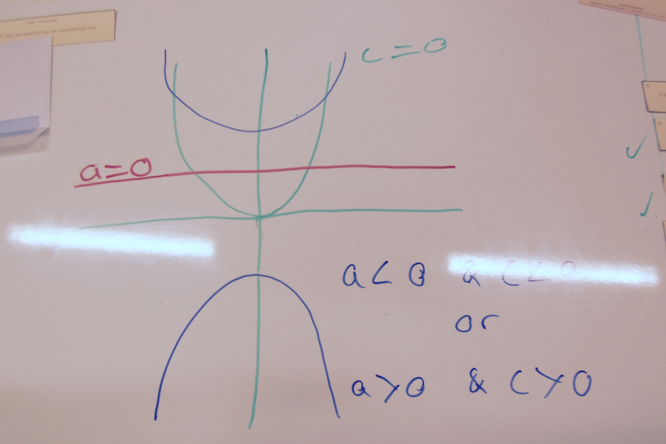 c=0
a=0
a<0 & c<0
or
a>0 & c>0